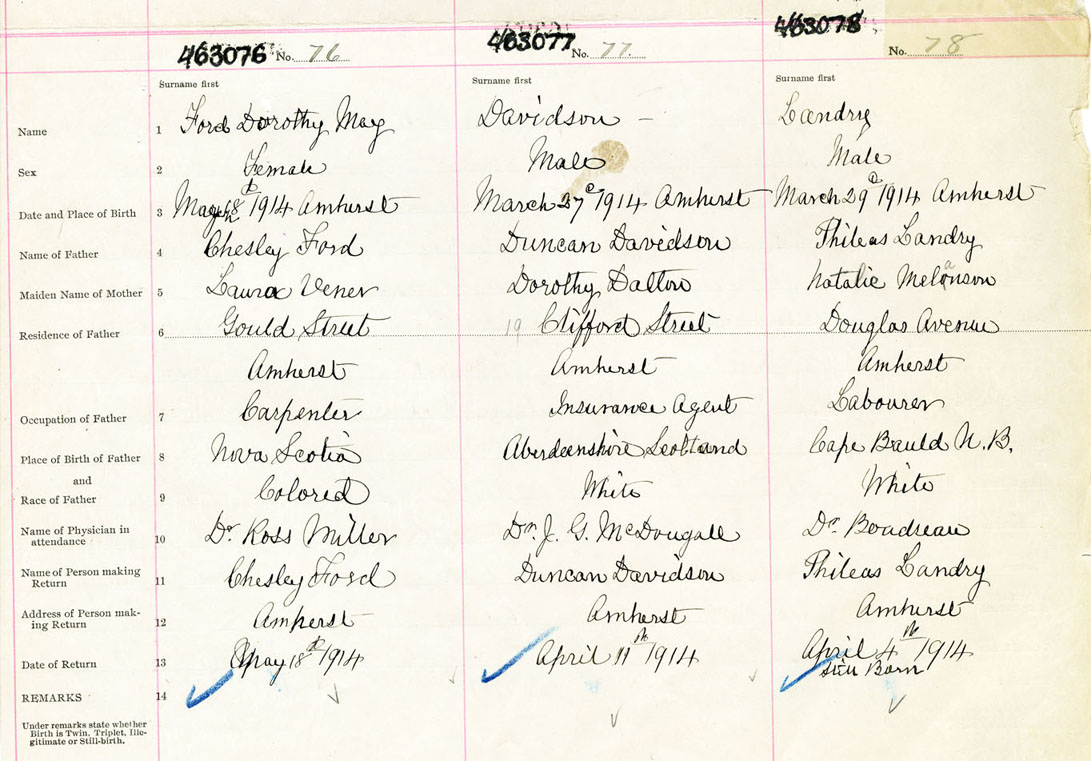 463076 No. 76 463077 No. 77 463078 No. 78
Surname first Surname first Surname first
Name 1 Ford Dorothy May Davidson – Landry
Sex 2 Female Male Male
Date and Place of Birth 3 1914 Amherst March 27th 1914 Amherst March 29th 1914 Amherst
Name of Father 4 Chesley Ford Duncan Davidson Phileas Landry
Maiden Name of Mother 5 Laura Vener Dorothy Dalton Natalie Melanson
Residence of Father 6 Gould Street 19 Clifford Street Douglas Avenue
Amherst Amherst Amherst
Occupation of Father 7 Carpenter Insurance Agent Labourer
Place of Birth of Father 8 Nova Scotia Aberdeenshire Scotland Cape Bauld N.B.
and
Race of Father 9 Colored White White
Name of Physician in
attendance 10 Dr Ross Miller Dr. J. G. McDougall Dr Boudreau
Name of Person making
Return 11 Chesley Ford Duncan Davidson Phileas Landry
Address of Person mak-
ing Return 12 Amherst Amherst Amherst
Date of Return 13 May 18th 1914 April 11th 1914 April 4th 1914
Still Born
REMARKS 14
Under remarks state whether
Birth is Twin, Triplet, Ille-
gitimate or Still-birth.